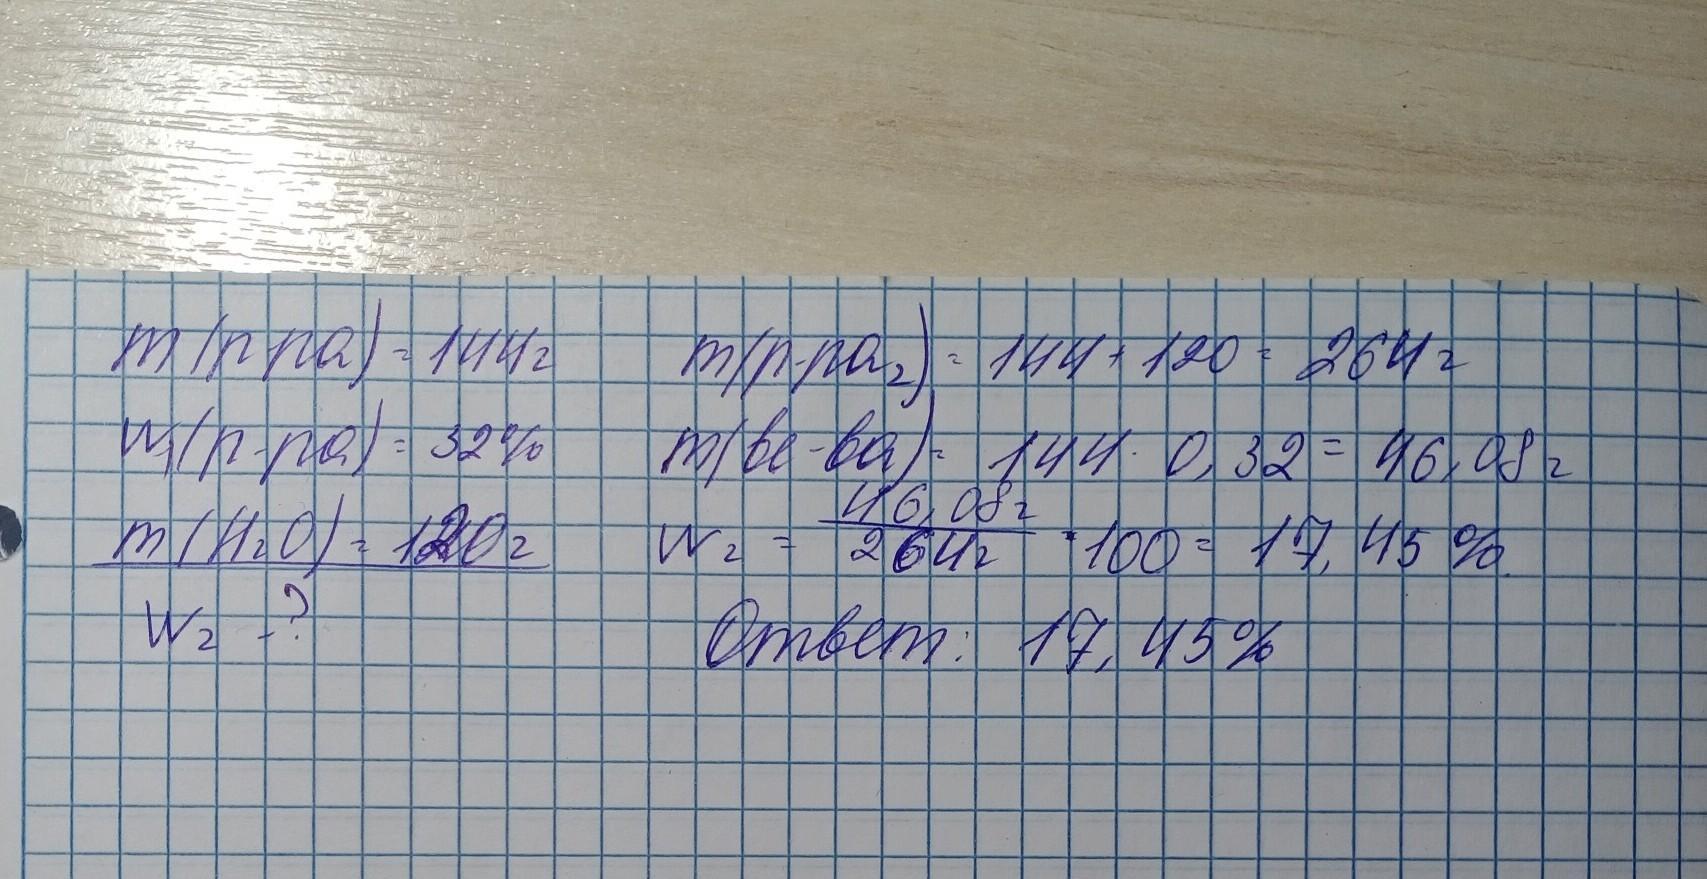 m(р-ра) = 144г
W₁(р-ра) = 32%
m(H₂O) = 120г
W₂ - ?
m(р-ра₂) = 144 + 120 = 264г
m(ве-ва) = 144 · 0,32 = 46,08г
W₂ = 46,08г / 264г · 100 = 17,45%.
Ответ: 17,45%